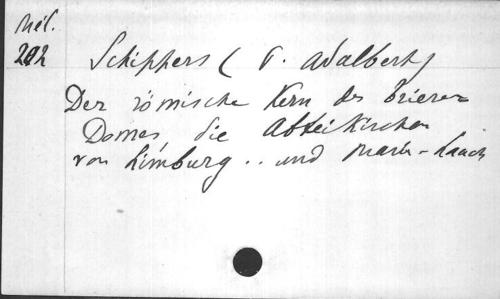 Mél.
212
Schippers (P. Adalbert)
Der römische Kern des Trierer
Domes die Abteikirchen
von Limburg .. und Maria-Laach